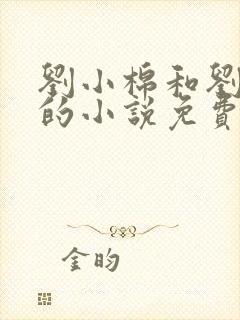 劉小棉和劉
的小說免費
金昀